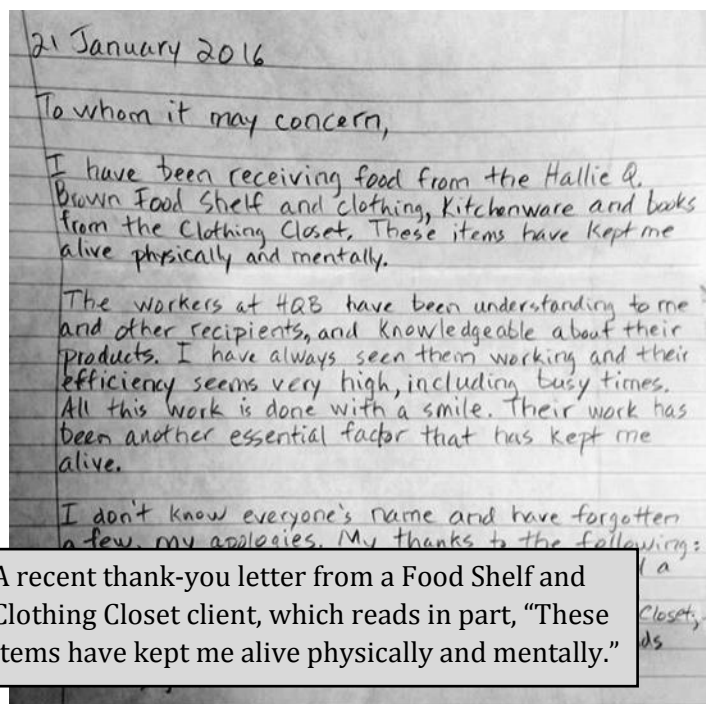 21 January 2016
To whom it may concern,
I have been receiving food from the Hallie Q.
Brown Food Shelf and clothing, Kitchenware and books
from the Clothing Closet. These items have kept me
alive physically and mentally.
The workers at HQB have been understanding to me
and other recipients, and knowledgeable about their
products. I have always seen them working and their
efficiency seems very high, including busy times.
All this work is done with a smile. Their work has
been another essential factor that has kept me
alive.
I don't know everyone's name and have forgotten
a few, my apologies. My thanks to the following:
a
Closet,
A recent thank-you letter from a Food Shelf and
Clothing Closet client, which reads in part, “These
items have kept me alive physically and mentally.”